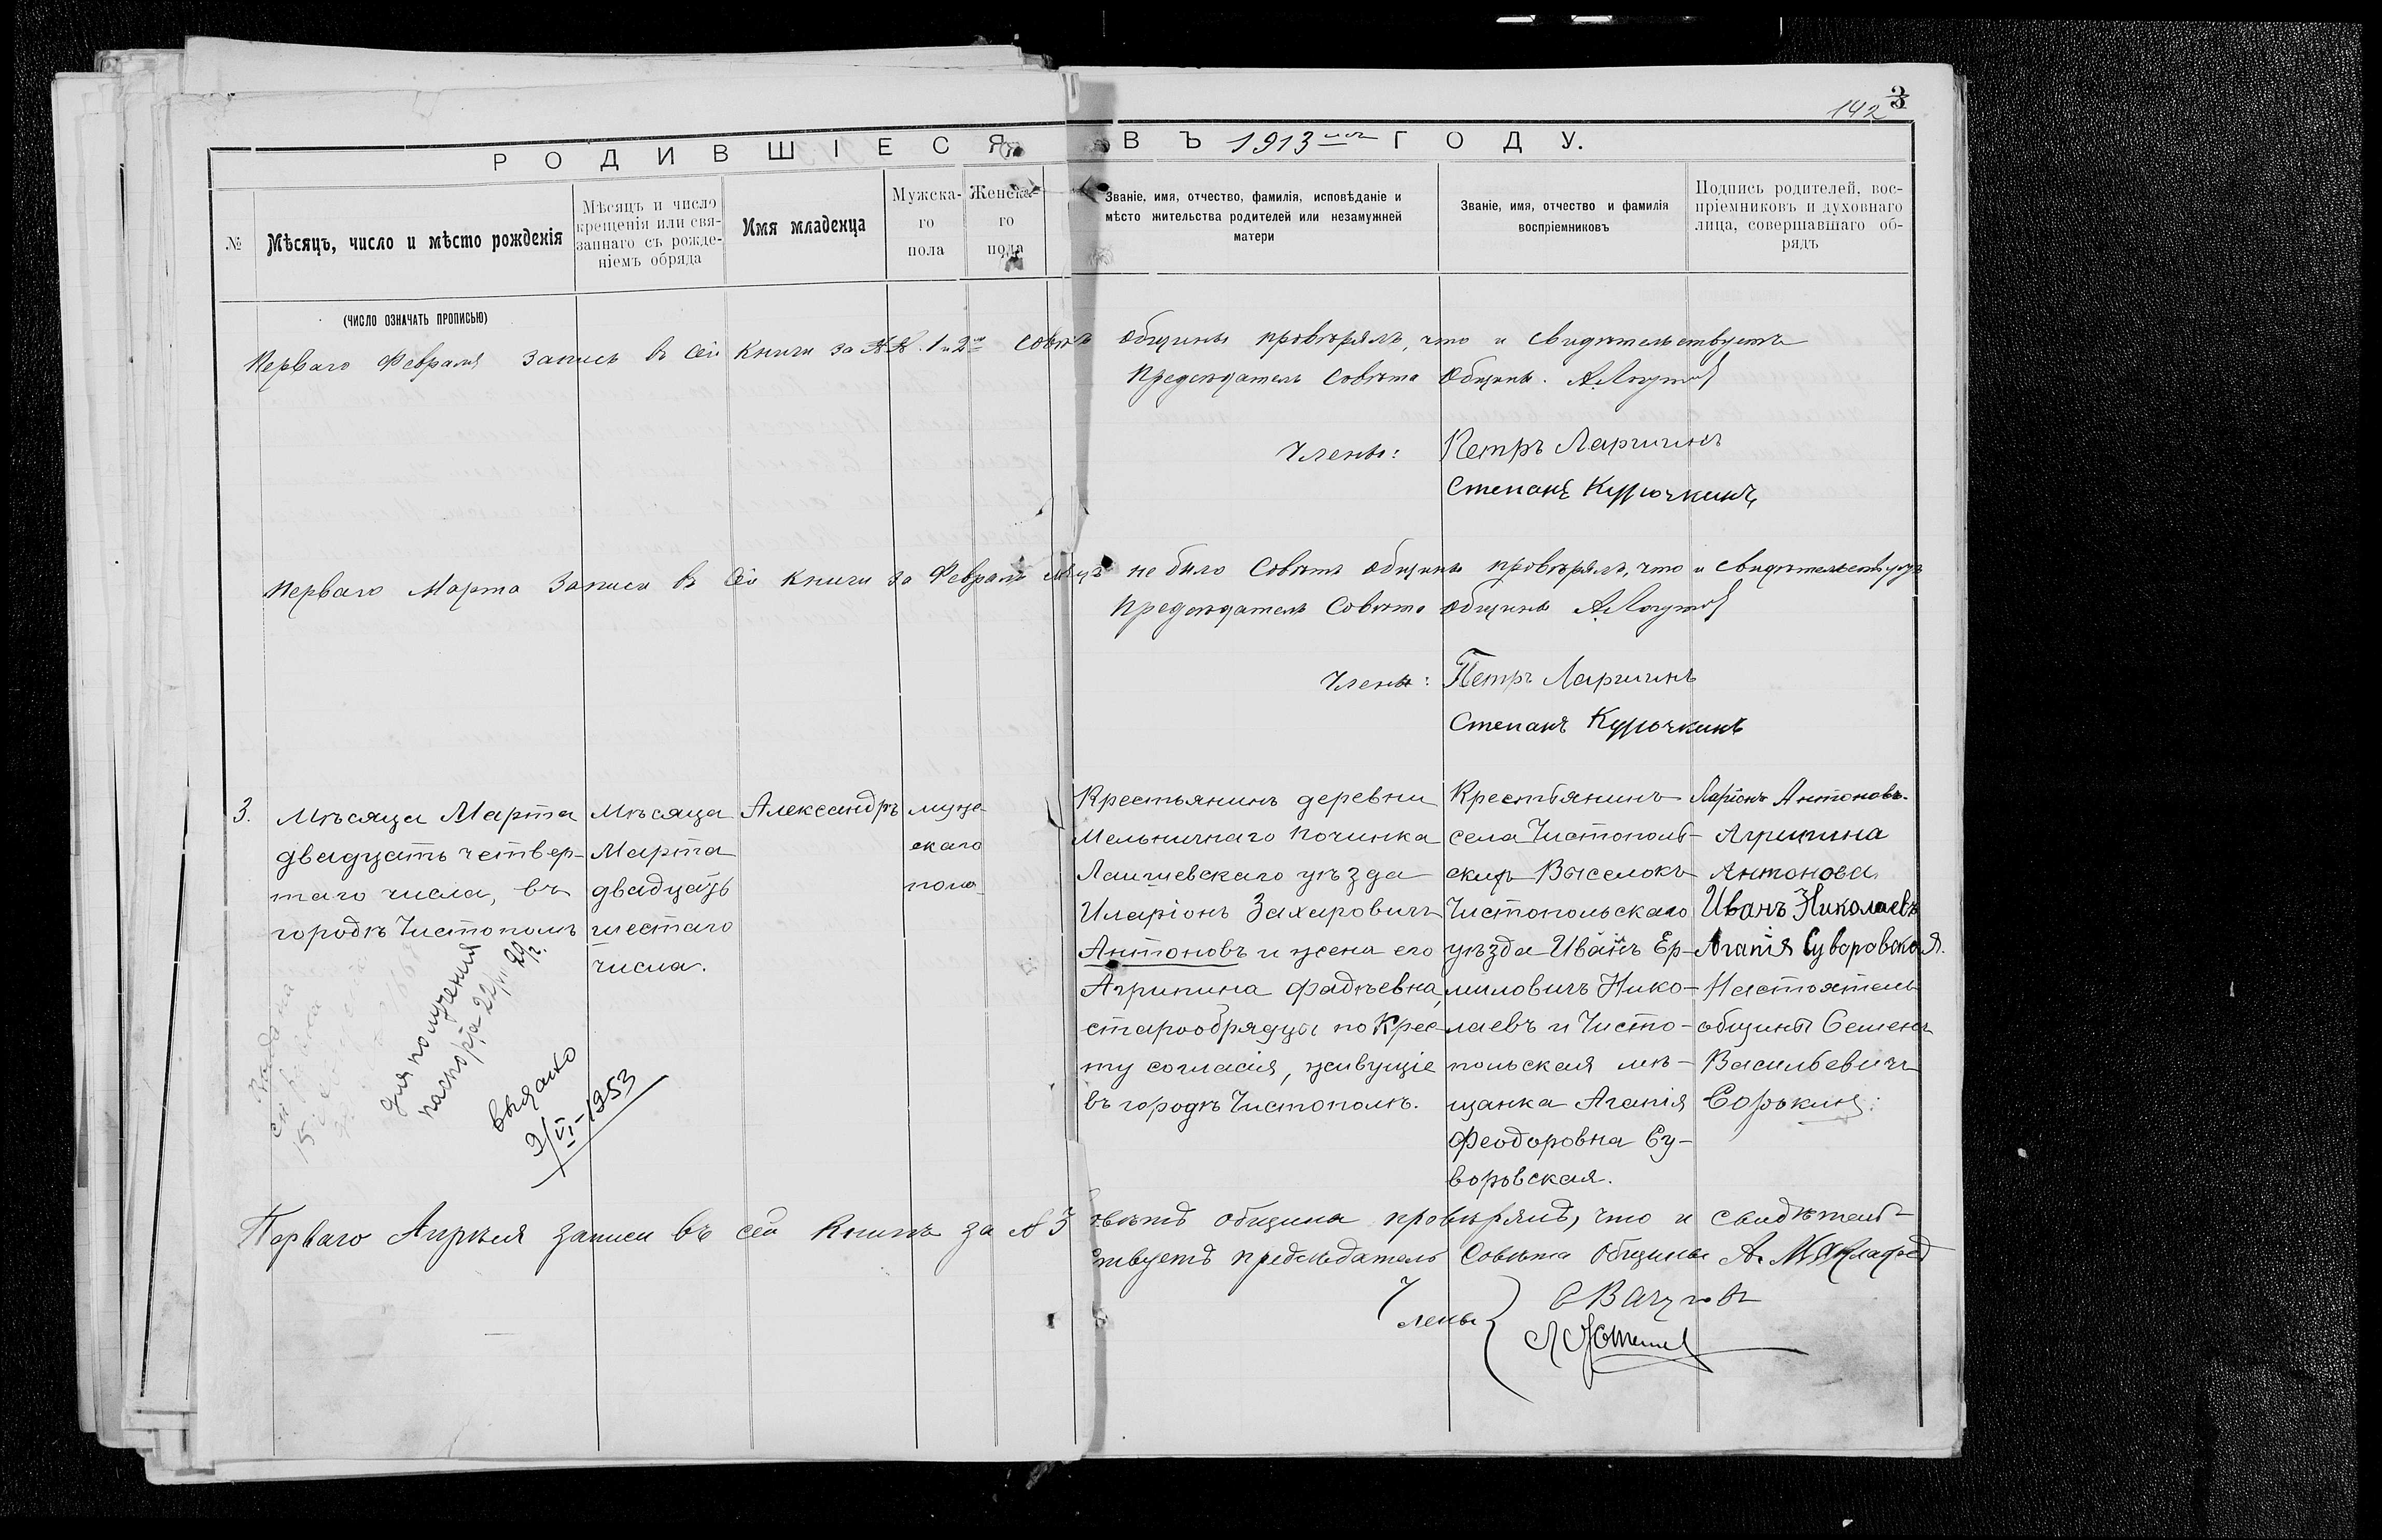 142 3
РОДИВШІЕСЯ ВЪ 1913 ГОДУ.
№
Мѣсяцъ, число и мѣсто рожденія
Мѣсяцъ и число
крещенія или свя-
заннаго съ рожде-
ніемъ обряда
Имя младенца
Мужска-
го
пола
Женска-
го
пола
Званіе, имя, отчество, фамилія, исповѣданіе и
мѣсто жительства родителей или незамужней
матери
Званіе, имя, отчество и фамилія
воспріемниковъ
Подпись родителей, вос-
пріемниковъ и духовнаго
лица, совершавшаго об-
рядъ
(ЧИСЛО ОЗНАЧАТЬ ПРОПИСЬЮ)
Перваго Февраля запись в сей книги за №№ 1 и 2 Совѣтъ общины провѣрялъ, что и свидѣтельствуетъ
Предсѣдатель Совѣта Общины. А.
Члены: Петръ Ларичинъ
Степанъ Курочкинъ
Перваго Марта Записи в сей книги за Февраль мѣсцъ не было Совѣтъ общины провѣрялъ, что и свидѣтельствуетъ
Предсѣдатель Совѣта Общины А.
Члены: Петръ Ларичинъ
Степанъ Курочкинъ
3.
Мѣсяца Марта
двадцать четвер-
таго числа, въ
городѣ Чистополѣ
Мѣсяца
Марта
двадцать
шестаго
числа.
Александръ
муже-
скаго
пола
Крестьянинъ деревни
Мельничнаго Починка
Лаишевскаго уѣзда
Иларіонъ Захаровичъ
Антоновъ и жена его
Агрипина Фадѣевна,
старообрядцы по Крес-
ту согласія, живущіе
въ городѣ Чистополѣ.
Крестьянинъ
села Чистополь-
скихъ Выселокъ
Чистопольскаго
уѣзда Иванъ Ер-
миловичъ Нико-
лаевъ и Чисто-
польская мѣ-
щанка Агапія
Феодоровна Су-
воровская.
Ларіонъ Антоновъ.
Агрипина
Антонова
Иванъ Николаевъ
Агапія Суворовская.
Настоятель
общины Семенъ
Васильевичъ
Сорокинъ:
для полученія
паспорта 22/ 29 г.
выдано
2/VI-1953
Перваго Апрѣля записи въ сей книгѣ за № 3 Совѣтъ общины провѣрялъ, что и свидѣтель-
ствуетъ предсѣдатель Совѣта Общины А.
Члены